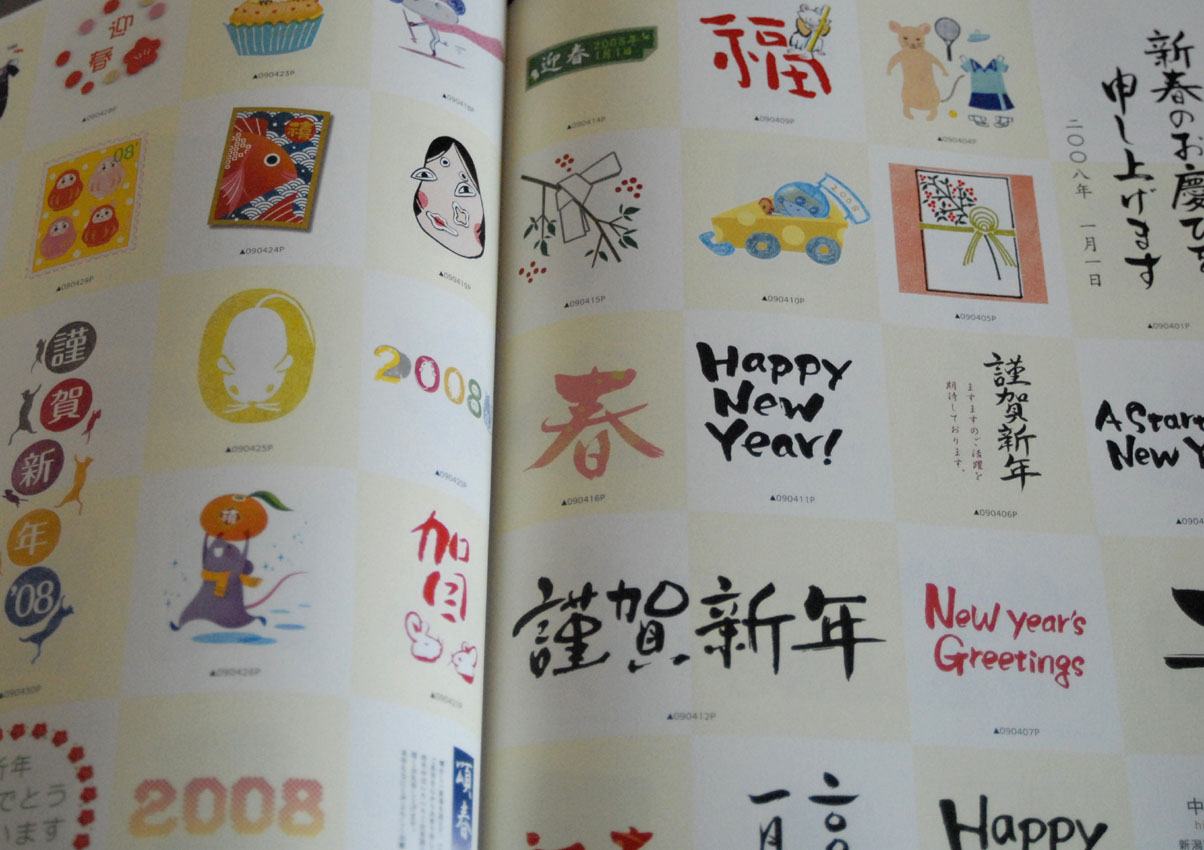 迎
春
▲090428P
▲090423P
▲090418P
08'
▲090429P
▲090424P
▲090419P
謹
賀
新
年
'08
▲090430P
▲090425P
2008
▲090420P
▲090426P
賀
▲090421P
新年
でとう
います
2008
頌春
迎春 2008年
1月1日
▲090414P
福
▲090409P
▲090404P
新春のお慶びを
申し上げます
二〇〇八年 一月一日
▲090401P
▲090415P
2008
▲090410P
▲090405P
春
▲090416P
Happy
New
Year!
▲090411P
謹賀新年
ますますのご活躍を
期待しております。
▲090406P
A Start
New Y
▲0904
謹賀新年
▲090412P
New year's
Greetings
▲090407P
二〇〇
一月
Happy
中
hi
新